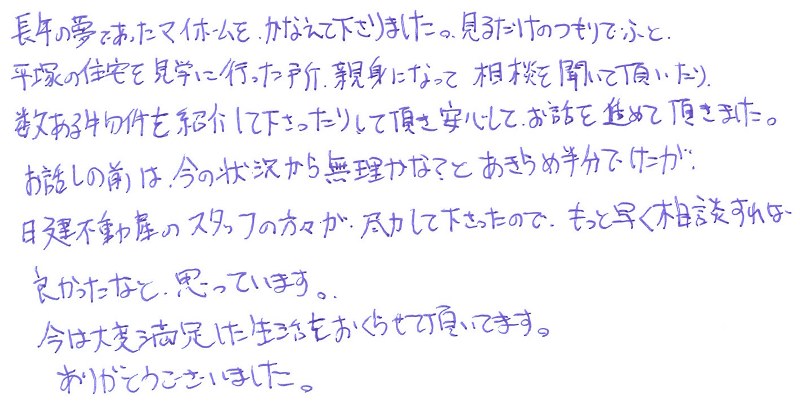 長年の夢であったマイホームを、かなえて下さりました。見るだけのつもりで、ふと、
平塚の住宅を見学に行った所、親身になって相談を聞いて頂いたり、
数ある物件を紹介して下さったりして頂き安心して、お話を進めて頂きました。
お話しの前は、今の状況から無理かな?とあきらめ半分でしたが、
日建不動産のスタッフの方々が、尽力して下さったので、もっと早く相談すれば
良かったなと、思っています。
今は大変満足した生活をおくらせて頂いてます。
ありがとうございました。